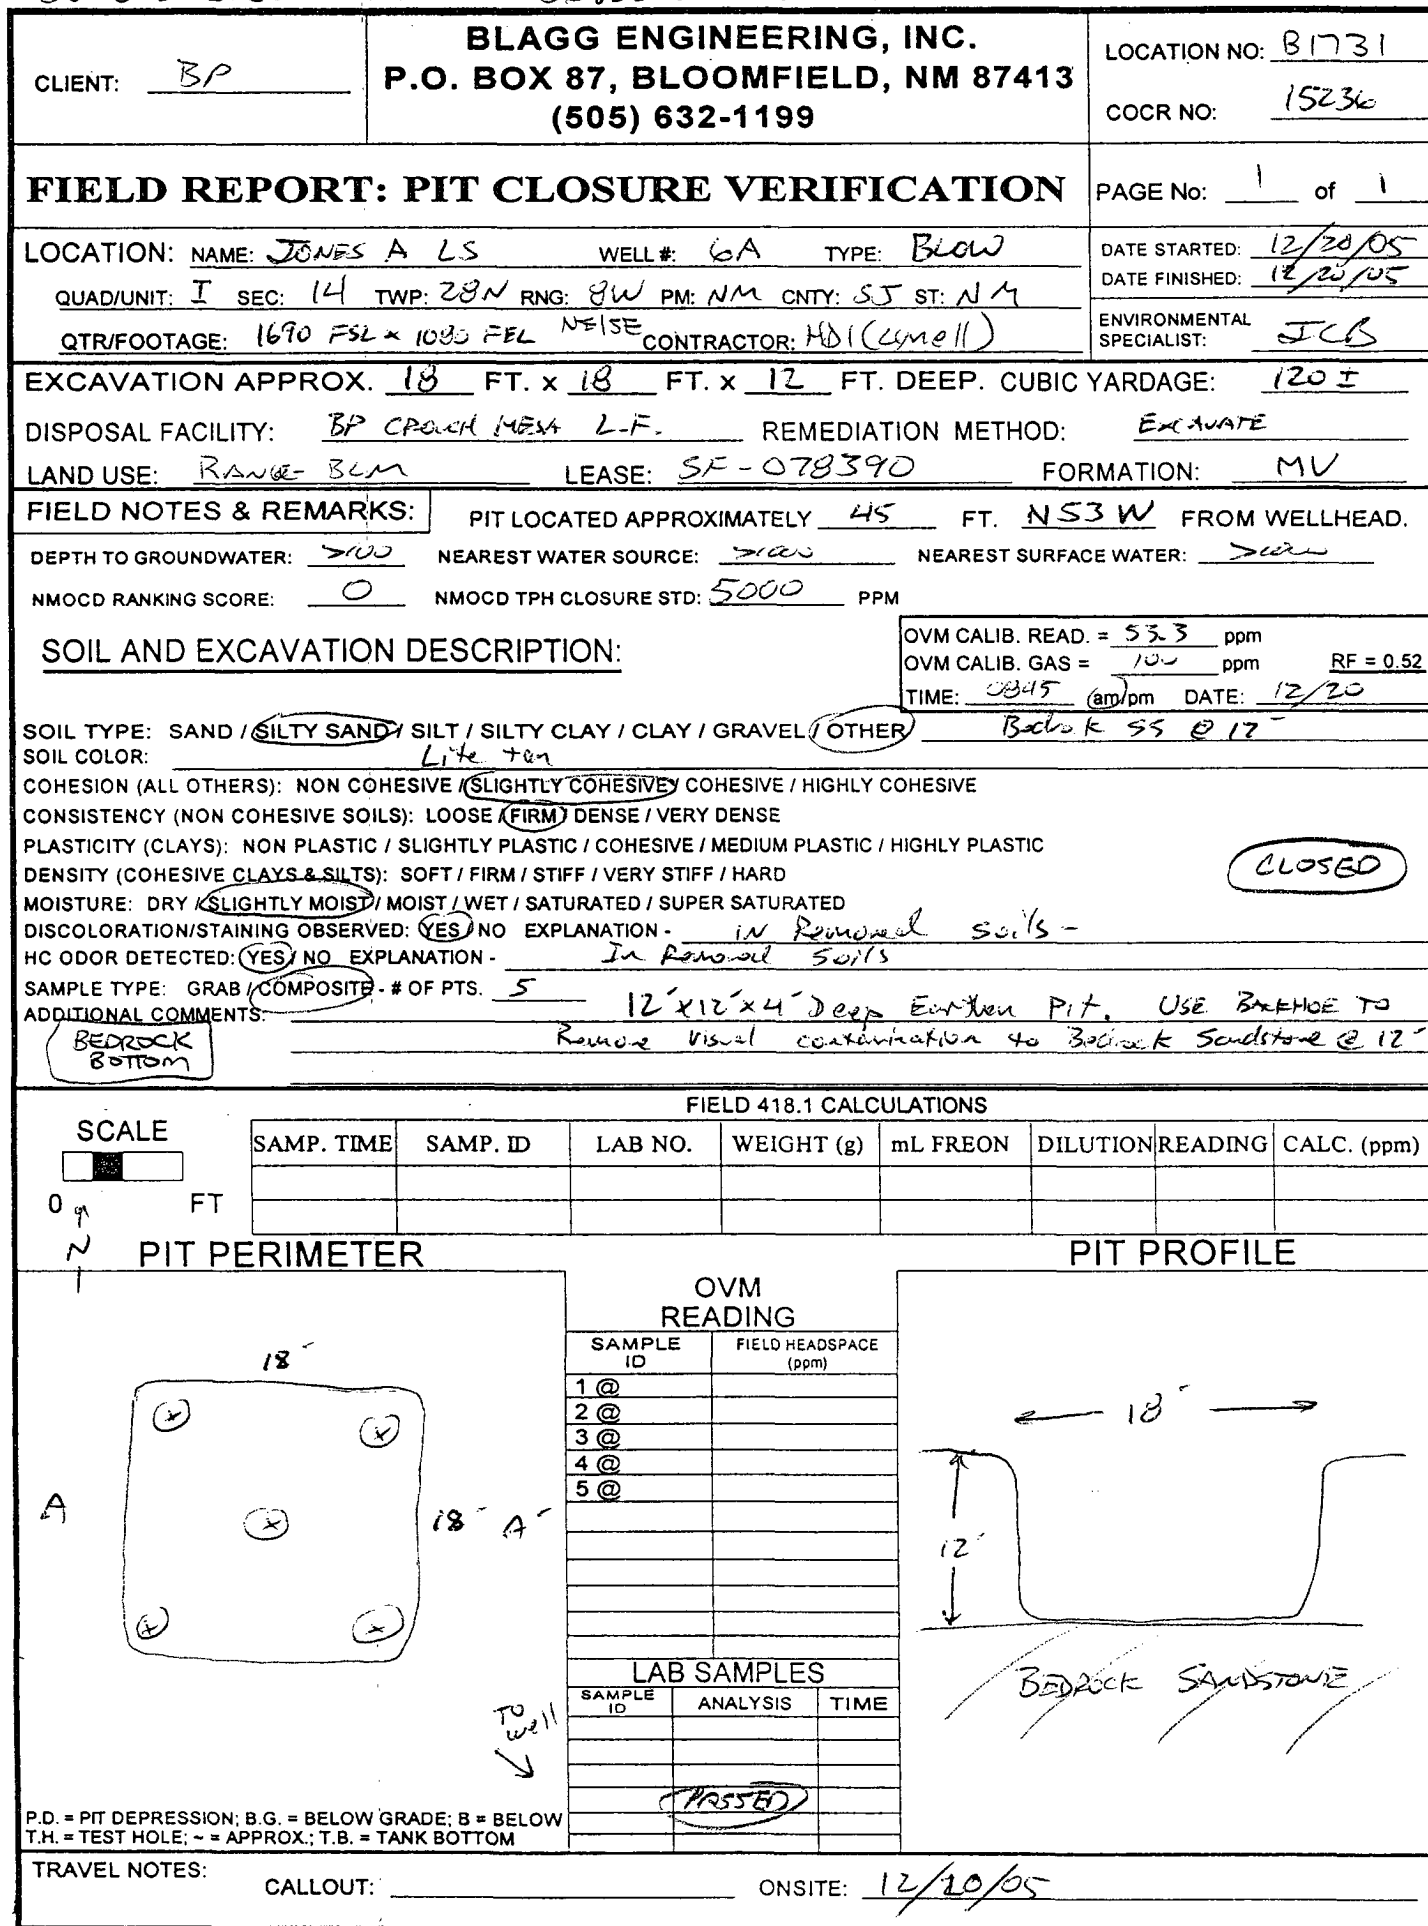 BLAGG ENGINEERING, INC.
P.O. BOX 87, BLOOMFIELD, NM 87413
(505) 632-1199
CLIENT: BP
LOCATION NO: B1731
COCR NO: 15236
FIELD REPORT: PIT CLOSURE VERIFICATION
PAGE No: 1 of 1
LOCATION: NAME: JONES A LS WELL #: 6A TYPE: BLOW
QUAD/UNIT: I SEC: 14 TWP: 28N RNG: 8W PM: NM CNTY: SJ ST: NM
QTR/FOOTAGE: 1690 FSL x 1080 FEL NE/SE CONTRACTOR: HDI (Lynell)
DATE STARTED: 12/20/05
DATE FINISHED: 12/20/05
ENVIRONMENTAL SPECIALIST: JCB
EXCAVATION APPROX. 18 FT. x 18 FT. x 12 FT. DEEP. CUBIC YARDAGE: 120 ±
DISPOSAL FACILITY: BP CROUCH MESA L.F. REMEDIATION METHOD: EXCAVATE
LAND USE: RANGE - BLM LEASE: SF-078390 FORMATION: MV
FIELD NOTES & REMARKS: PIT LOCATED APPROXIMATELY 45 FT. N53W FROM WELLHEAD.
DEPTH TO GROUNDWATER: >100 NEAREST WATER SOURCE: >1000 NEAREST SURFACE WATER: >1000
NMOCD RANKING SCORE: 0 NMOCD TPH CLOSURE STD: 5000 PPM
SOIL AND EXCAVATION DESCRIPTION:
OVM CALIB. READ. = 53.3 ppm
OVM CALIB. GAS = 100 ppm RF = 0.52
TIME: 0845 am/pm DATE: 12/20
SOIL TYPE: SAND / SILTY SAND / SILT / SILTY CLAY / CLAY / GRAVEL / OTHER Bedrok SS @ 12'
SOIL COLOR: Lite tan
COHESION (ALL OTHERS): NON COHESIVE / SLIGHTLY COHESIVE / COHESIVE / HIGHLY COHESIVE
CONSISTENCY (NON COHESIVE SOILS): LOOSE / FIRM / DENSE / VERY DENSE
PLASTICITY (CLAYS): NON PLASTIC / SLIGHTLY PLASTIC / COHESIVE / MEDIUM PLASTIC / HIGHLY PLASTIC
DENSITY (COHESIVE CLAYS & SILTS): SOFT / FIRM / STIFF / VERY STIFF / HARD
CLOSED
MOISTURE: DRY / SLIGHTLY MOIST / MOIST / WET / SATURATED / SUPER SATURATED
DISCOLORATION/STAINING OBSERVED: YES / NO EXPLANATION - IN Removed Soils -
HC ODOR DETECTED: YES / NO EXPLANATION - In Removed Soils
SAMPLE TYPE: GRAB / COMPOSITE - # OF PTS. 5
ADDITIONAL COMMENTS: 12'x12'x4' Deep Earthen Pit. USE BACKHOE TO
Remove Visual contamination to Bedrock Sandstone @ 12'
BEDROCK
BOTTOM
FIELD 418.1 CALCULATIONS
SCALE
0 FT
SAMP. TIME SAMP. ID LAB NO. WEIGHT (g) mL FREON DILUTION READING CALC. (ppm)
N
PIT PERIMETER
PIT PROFILE
OVM
READING
SAMPLE ID FIELD HEADSPACE (ppm)
1 @
2 @
3 @
4 @
5 @
18'
A
18' A'
18'
12'
BEDROCK SANDSTONE
LAB SAMPLES
SAMPLE ID ANALYSIS TIME
PASSED
TO
well
P.D. = PIT DEPRESSION; B.G. = BELOW GRADE; B = BELOW
T.H. = TEST HOLE; ~ = APPROX.; T.B. = TANK BOTTOM
TRAVEL NOTES:
CALLOUT: ONSITE: 12/20/05